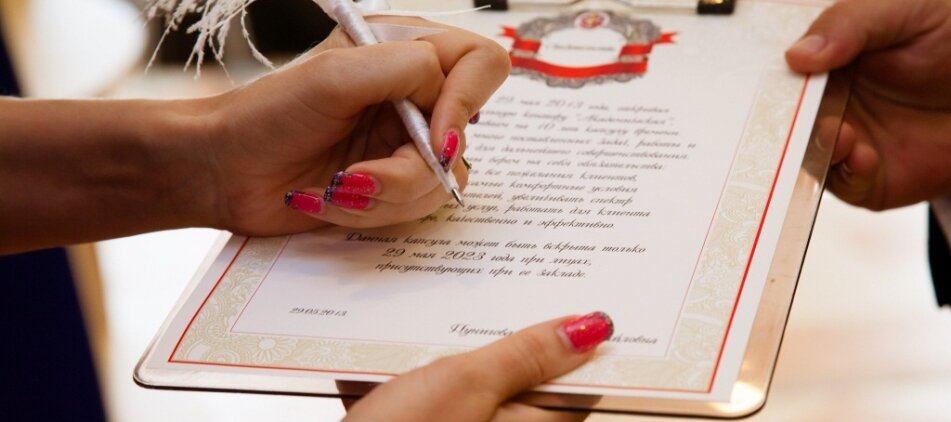 29 мая 2013 года, открывая
"Академическая",
на 10 лет капсулу времени.
много поставленных задач, работы и
для дальнейшего совершенствования.
берем на себя обязательства:
все пожелания клиентов,
самые комфортные условия
увеличивать спектр
услуг, работать для клиента
качественно и эффективно.
Данная капсула может быть вскрыта только
29 мая 2023 года при лицах,
присутствующих при ее закладе.
29.05.2013